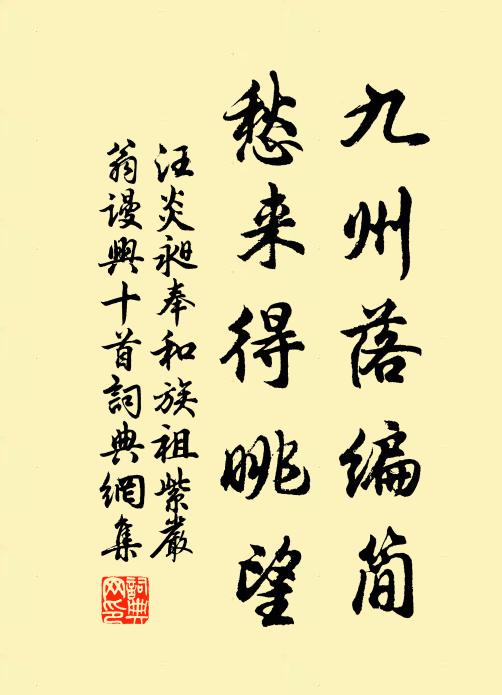 九州落编简
愁来得眺望
汪炎昶奉和族祖紫巖
翁谩興十首詞典網集
詞典網印